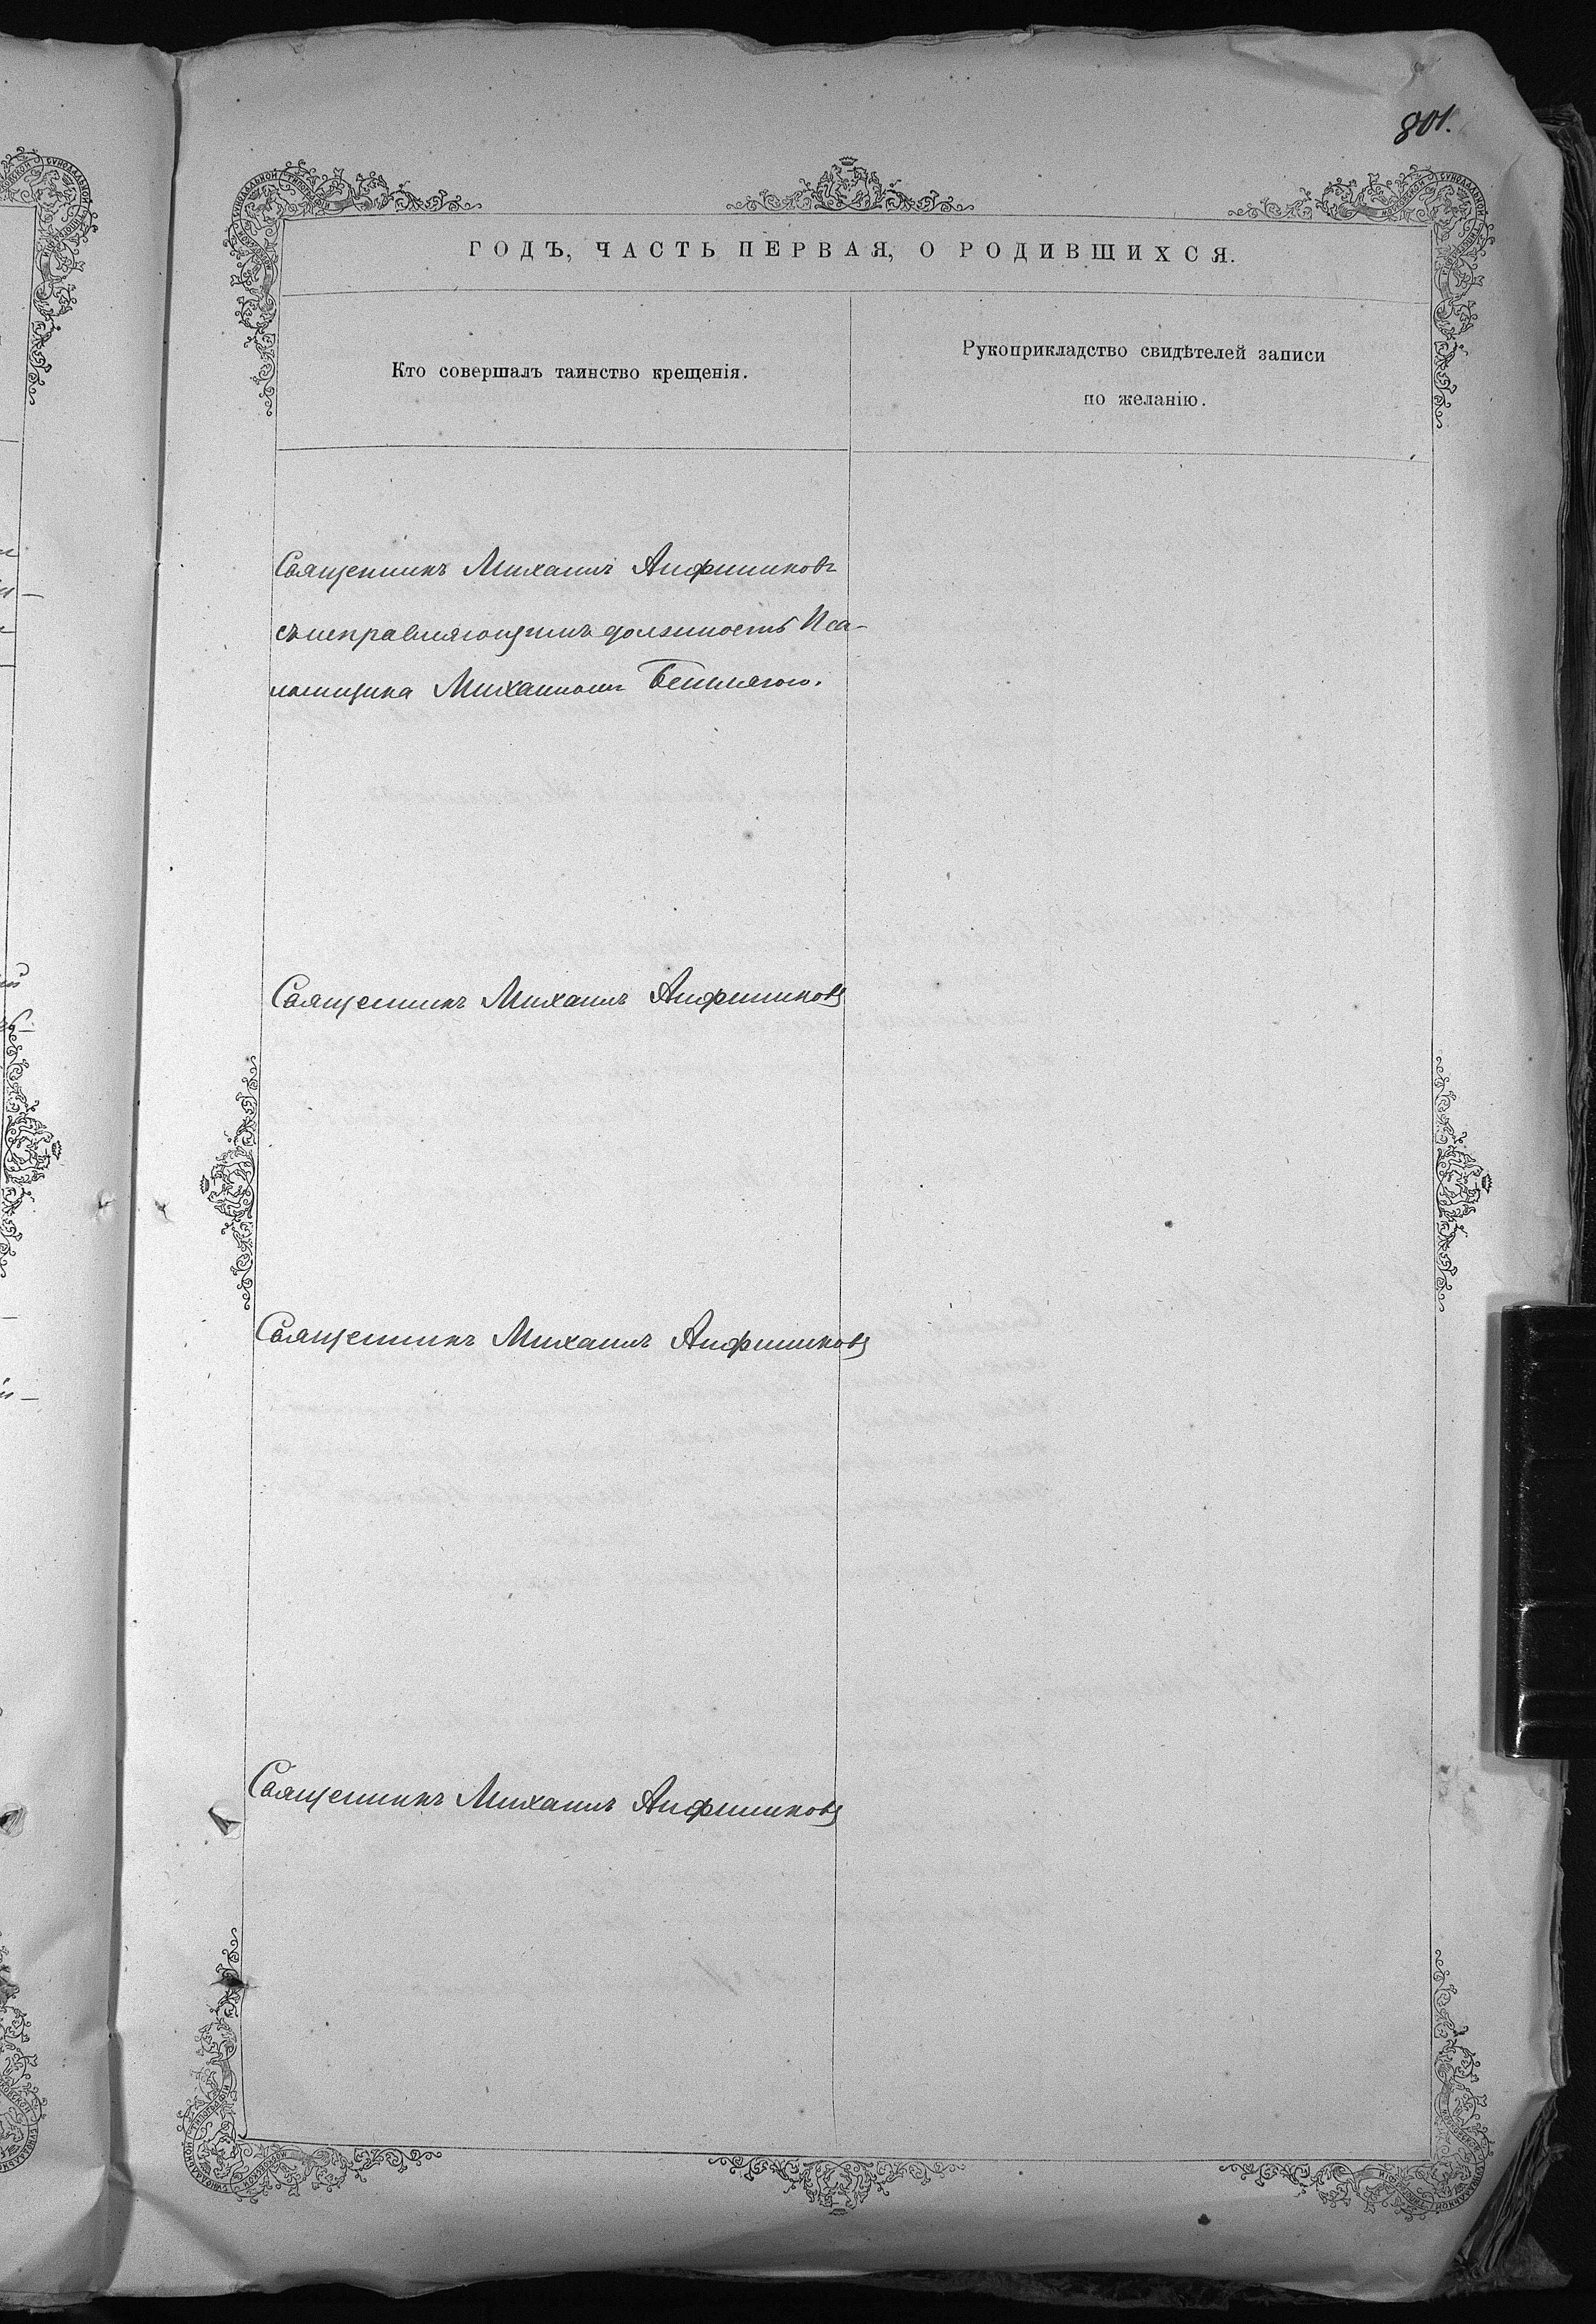 801.
ГОДЪ, ЧАСТЬ ПЕРВАЯ, О РОДИВШИХСЯ.
Кто совершалъ таинство крещенія.
Рукоприкладство свидѣтелей записи
по желанію.
Священникъ Михаилъ
съ исправляющимъ должность Пса-
ломщика Михаиломъ
Священникъ Михаилъ
Священникъ Михаилъ
Священникъ Михаилъ